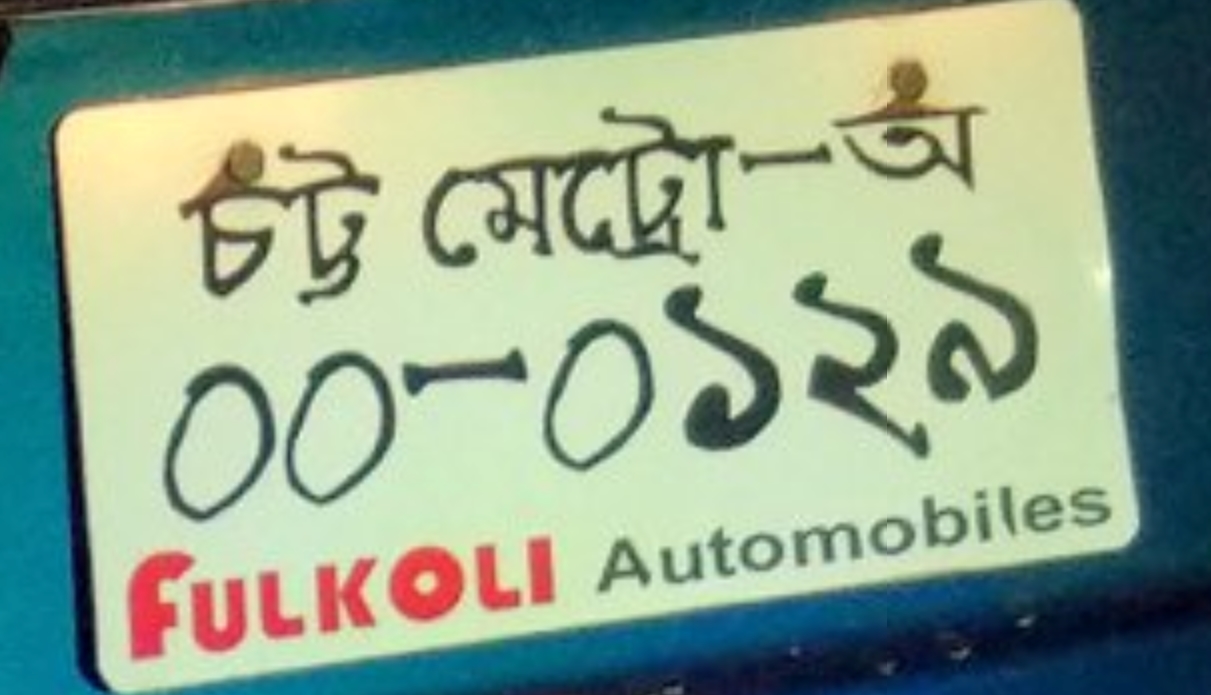 চট্ট মেট্রো-অ
০০-০১২৯
FULKOLI Automobiles